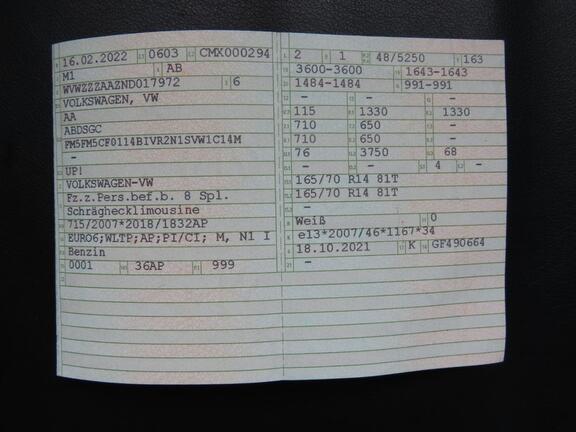 16.02.2022 0603 CMX000294
M1 AB
WVWZZZAAZND017972 6
VOLKSWAGEN, VW
AA
ABDSGC
FM5FM5CF0114BIVR2N1SVW1C14M
-
UP!
VOLKSWAGEN-VW
Fz.z.Pers.bef.b. 8 Spl.
Schräghecklimousine
715/2007*2018/1832AP
EURO6;WLTP;AP;PI/CI; M, N1 I
Benzin
0001 36AP 999
2 1 48/5250 163
3600-3600 1643-1643
1484-1484 991-991
- - -
115 1330 1330
710 650 -
710 650 -
76 3750 68
- - 4 -
165/70 R14 81T
165/70 R14 81T
-
Weiß 0
e13*2007/46*1167*34
18.10.2021 K GF490664
-